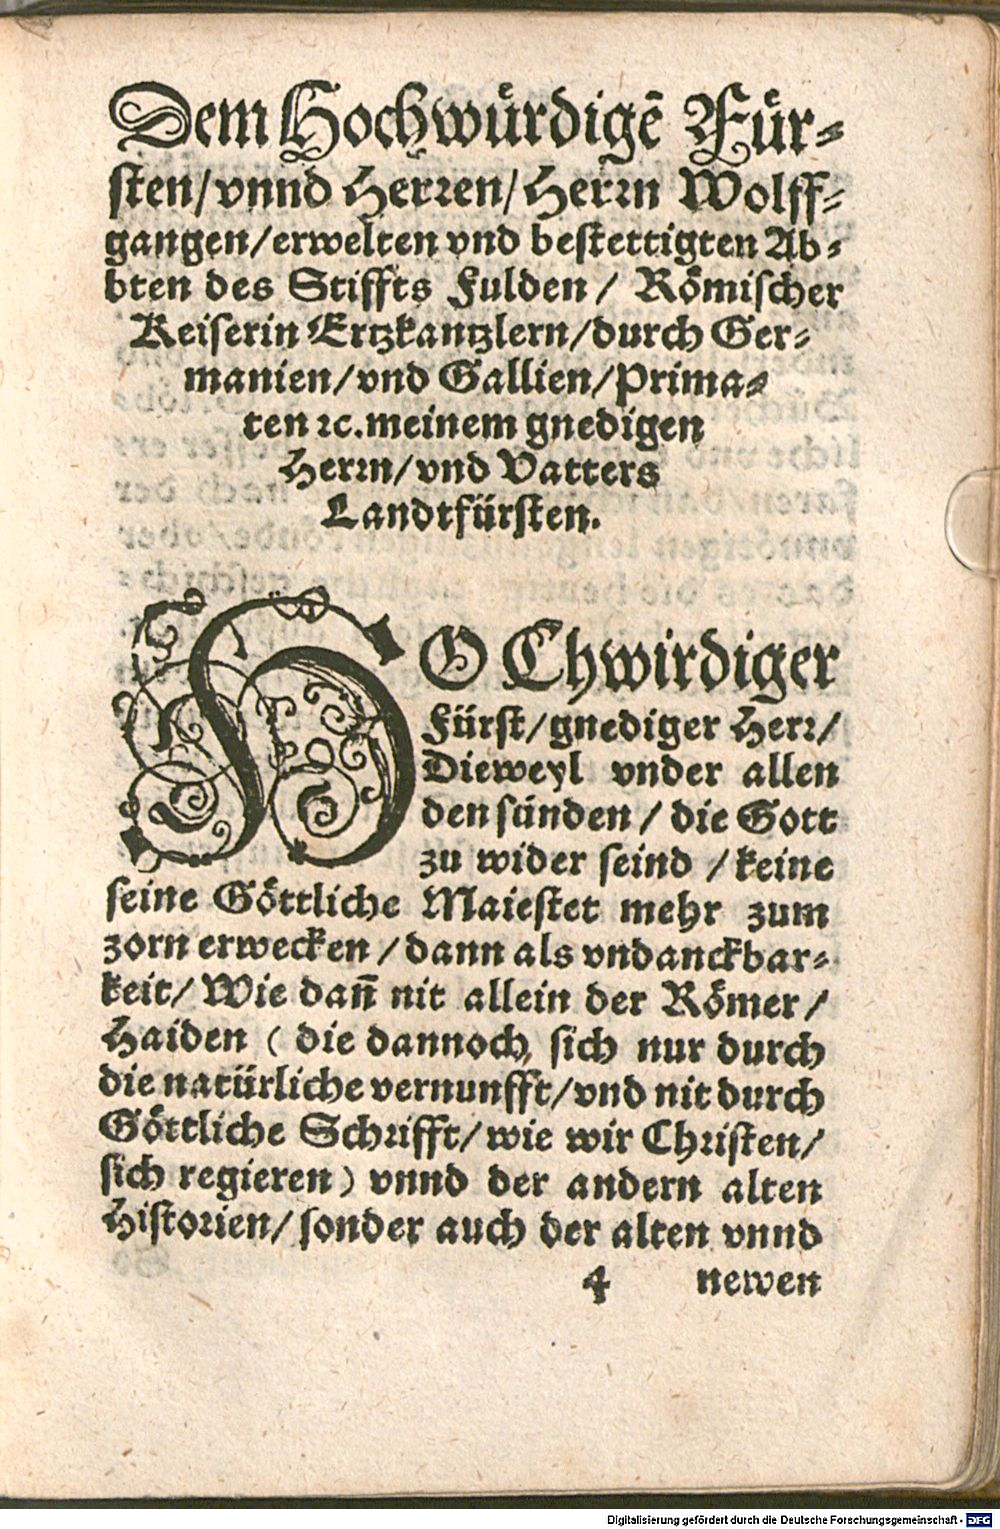 Dem Hochwürdigē Für-
sten/vnnd Herren/Herrn Wolff-
gangen/erwelten vnd bestettigten Ab-
bten des Stiffts Fulden/ Römischer
Keiserin Ertzkantzlern/durch Ger-
manien/vnd Gallien/Prima-
ten ꝛc.meinem gnedigen
Herrn/vnd Vatters
Landtfürsten.
HO Chwirdiger
Fürst/gnediger Herr/
Dieweyl vnder allen
den sünden / die Gott
zu wider seind / keine
seine Göttliche Maiestet mehr zum
zorn erwecken / dann als vndanckbar-
keit/ Wie dañ nit allein der Römer /
Haiden ( die dannoch, sich nur durch
die natürliche vernunfft/vnd nit durch
Göttliche Schrifft/wie wir Christen/
sich regieren) vnnd der andern alten
Historien/ sonder auch der alten vnnd
4 newen
Digitalisierung gefördert durch die Deutsche Forschungsgemeinschaft - DFG